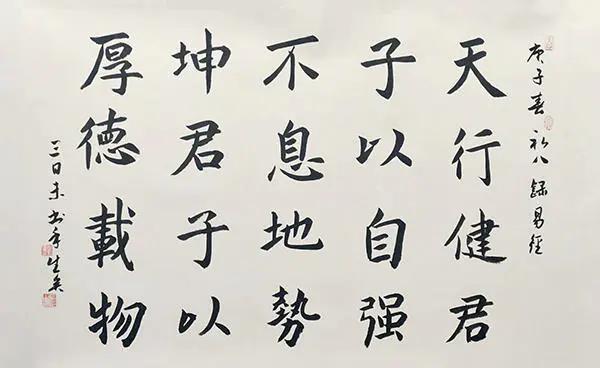 庚子春 初八 録易經
天行健君
子以自强
不息地勢
坤君子以
厚德載物
三日